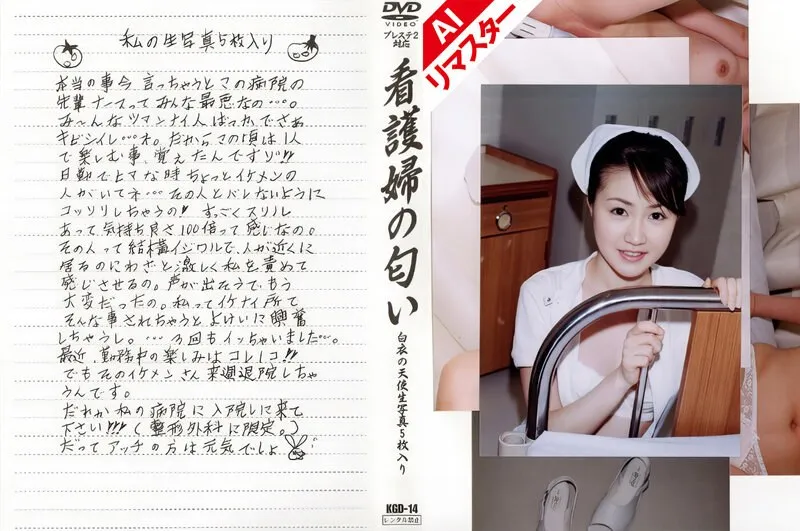 私の生写真5枚入り
本当の事今言っちゃうとこの病院の
先輩ナースってみんな最悪なの…。
み〜んなツマンナイ人ばっかでさぁ
キビシイし…ネ。だからこの頃は1人
で楽しむ事、覚えたんですリ!!
日勤でヒマな時ちょっとイケメンの
人がいてネ…その人とバレないように
コッソリしちゃうの!!すっごくスリル
あって気持ち良さ100倍って感じなの。
その人って結構イジワルで、人が近くに
居るのにわざと激しく私を責めて
感じさせるの。声が出そうで、もう
大変だったの。私ってイケナイ所で
そんな事されちゃうとよけいに興奮
しちゃうし。…3回もイッちゃいました…。
最近、勤務中の楽しみはコレ1コ!!
でもそのイケメンさん来週退院しちゃ
うんです。
だれか私の病院に入院しに来て
下さい!!!(整形外科に限定。)
だってアッチの方は元気でしょ
DVD
VIDEO
プレステ2
対応
看護婦の匂い
白衣の天使生写真5枚入り
KGD-14
レンタル禁止
AI
リマスター